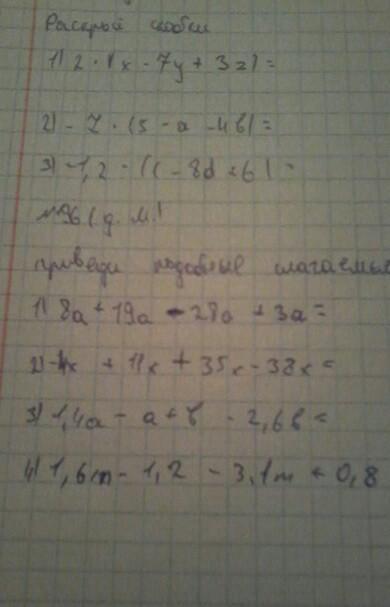 Раскрой скобки
1) 2 · (x - 7y + 3z) =
2) - 7 · (5 - a - 4b) =
3) -1,2 · (c - 8d + 6) =
№96 (д. м.)
приведи подобные слагаемые
1) 8a + 19a - 28a + 3a =
2) -4x + 11x + 35x - 38x =
3) 1,4a - a + b - 2,6b =
4) 1,6m - 1,2 - 3,1m + 0,8